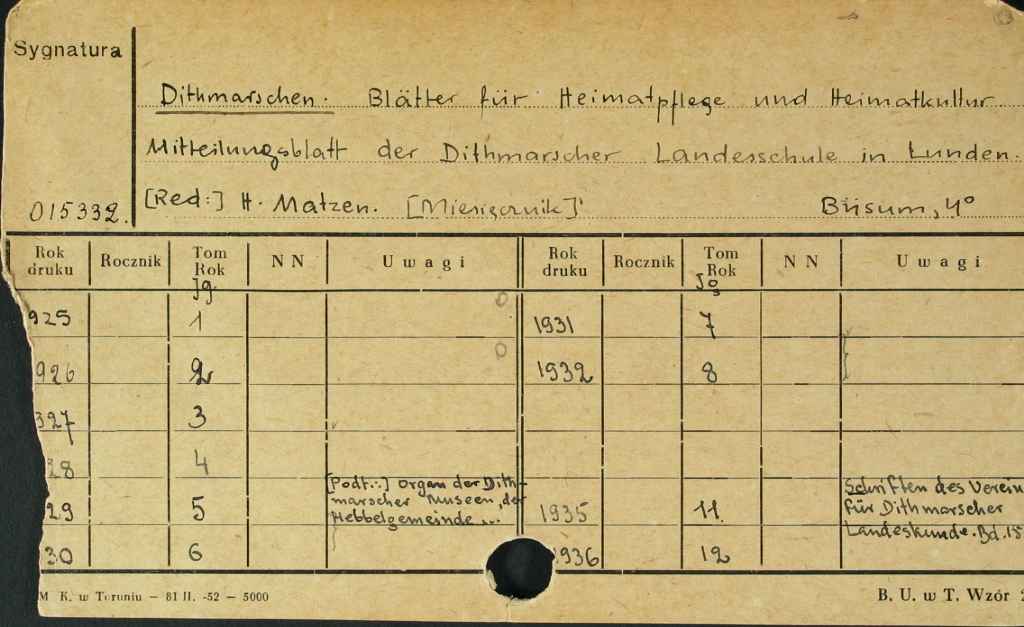 Sygnatura
Dithmarschen. Blätter für Heimatpflege und Heimatkultur
Mitteilungsblatt der Dithmarscher Landesschule in Lunden.
015332. [Red:] H. Matzen. [Miesięcznik] Büsum, 4º
Rok druku Rocznik Tom Rok NN Uwagi Rok druku Rocznik Tom Rok NN Uwagi
Jg Jg
925 1 1931 7
926 2 1932 8
327 3
28 4
[Podt.:] Organ der Dith- Schriften des Verein
marscher Museen, der für Dithmarscher
29 5 Hebbelgemeinde... 1935 11. Landeskunde. Bd. 15
30 6 1936 12
M K. w Toruniu – 81 II. -52 – 5000 B. U. w T. Wzór 2